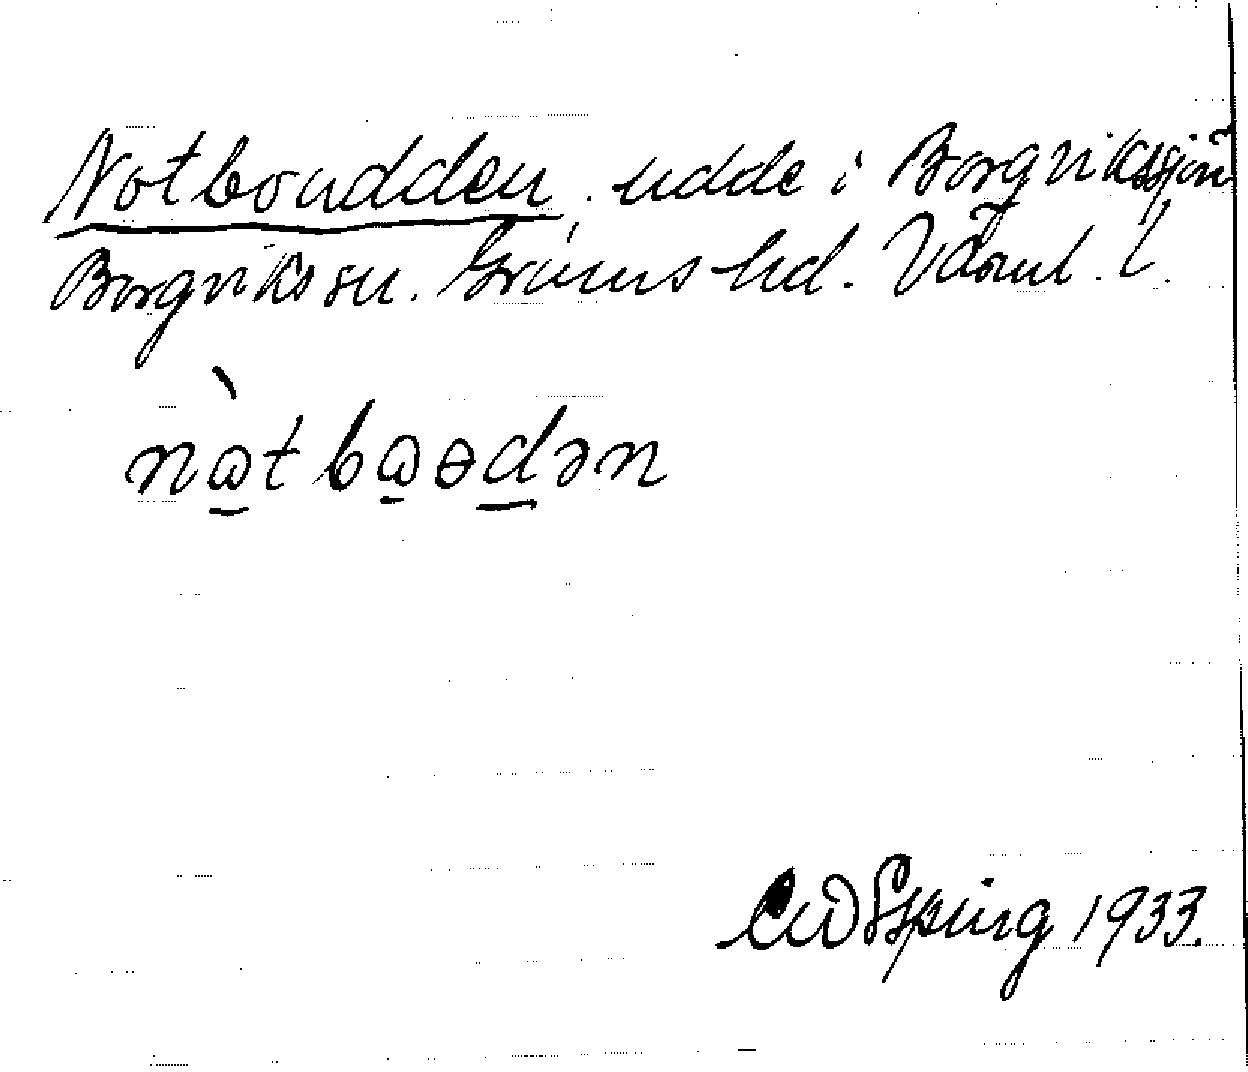 Notboudden, udde i Borgvikssjön
Borgviks sn. Grums hd. Värml. l.
nòtboɵdən
1933.